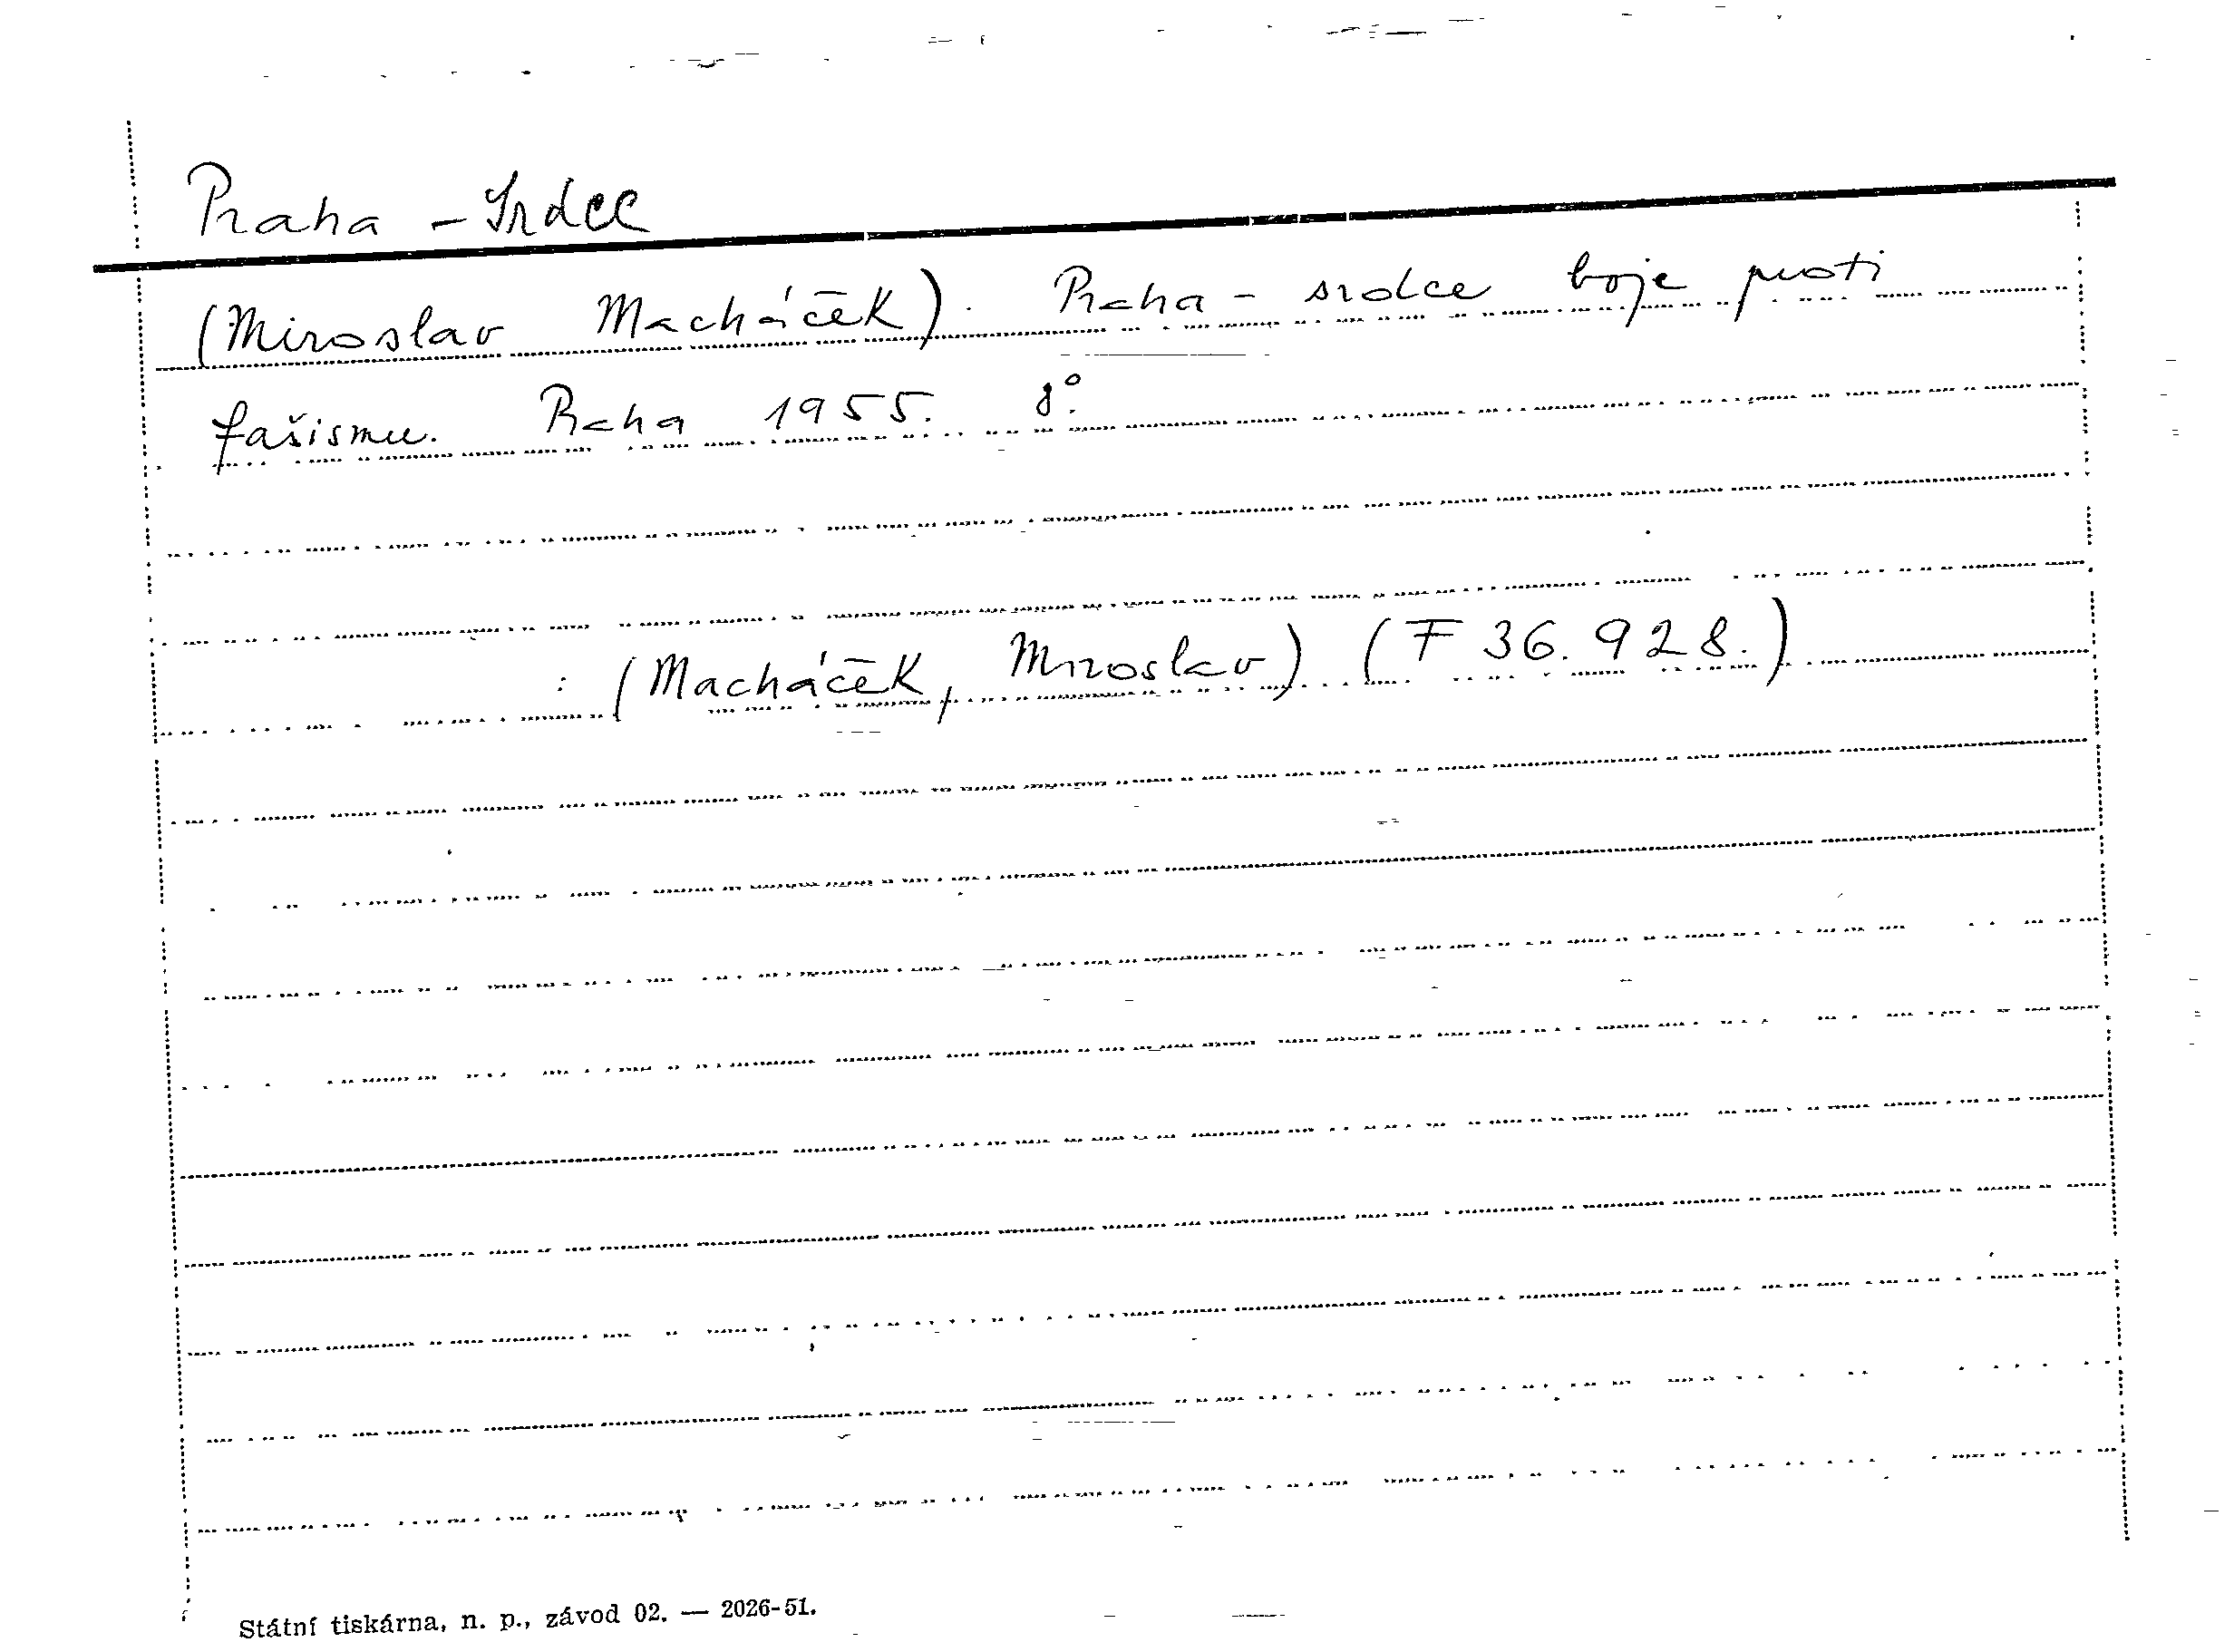 Praha - Srdce
(Miroslav Macháček). Praha - srdce boje proti
fašismu. Praha 1955. 8°.
: (Macháček, Miroslav) (F 36.928.)
Státní tiskárna, n. p., závod 02. — 2026-51.